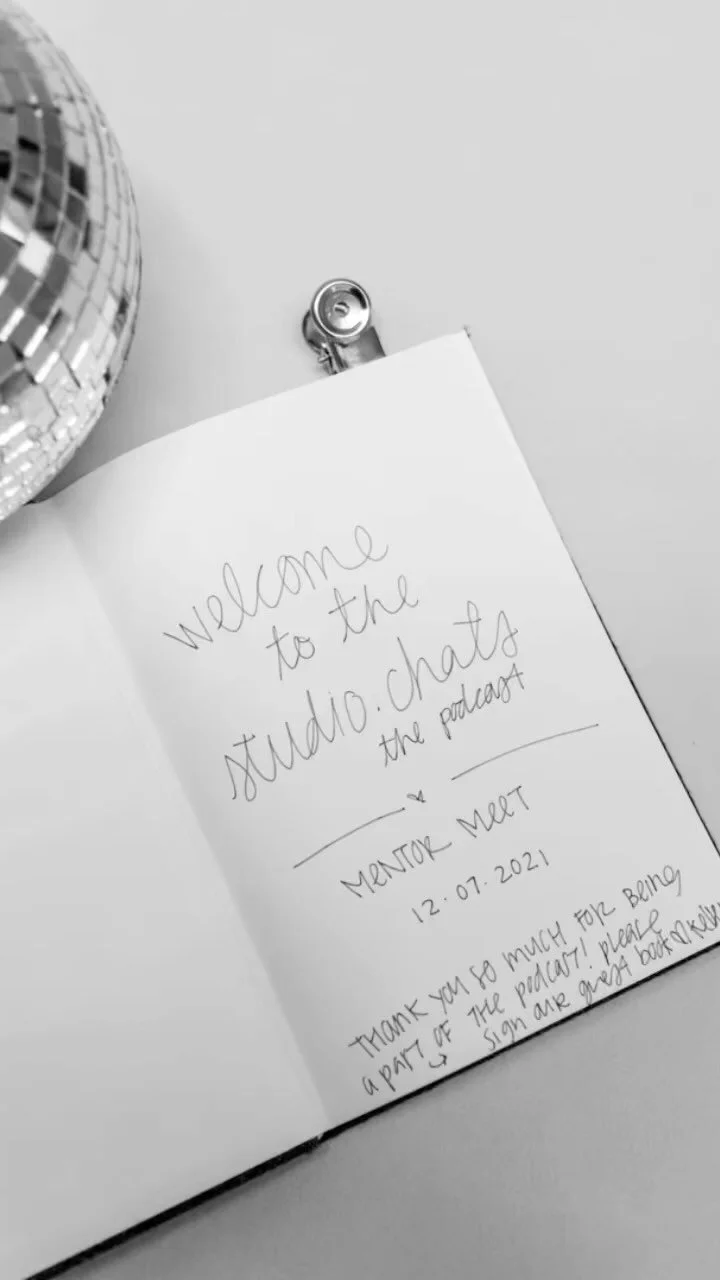 welcome
to the
studio.chats
the podcast
MENTOR MEET
12.07.2021
THANK YOU SO MUCH FOR BEING
a part OF THE podcast! please
sign our guest book